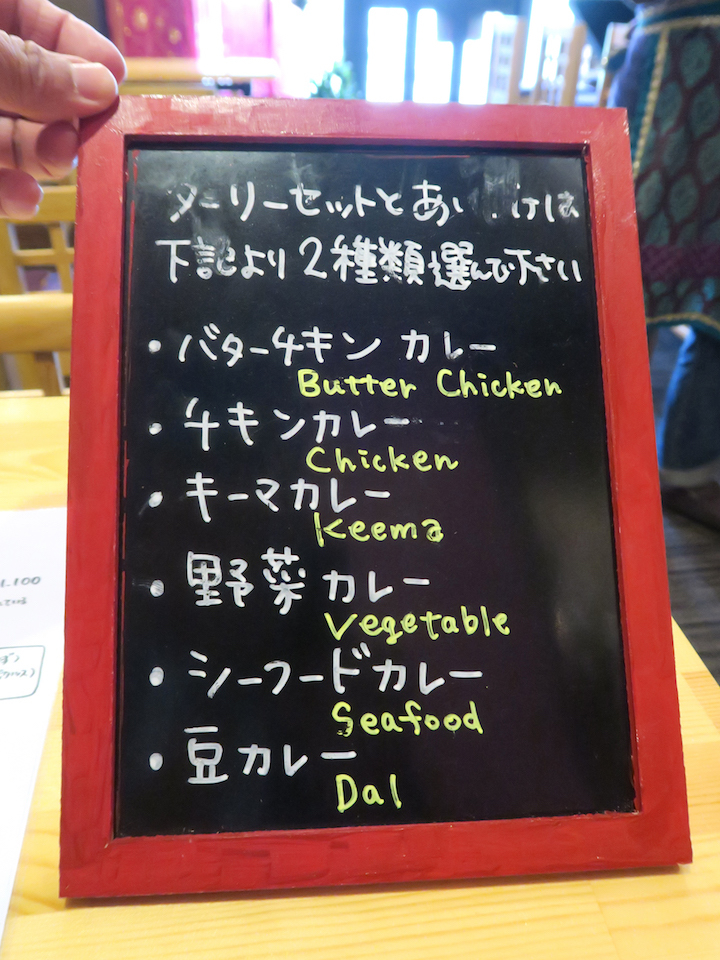 ターリーセットとあい けは
下記より2種類選んで下さい
・バターチキン カレー
Butter Chicken
・チキンカレー
Chicken
・キーマカレー
Keema
・野菜カレー
Vegetable
・シーフードカレー
Seafood
・豆カレー
Dal
1.100